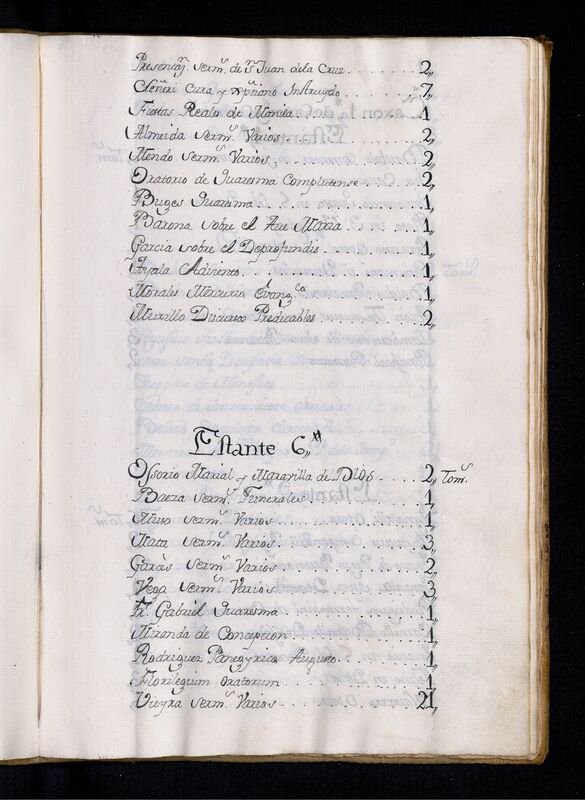 Presentaõn. serms. de Sn. Juan de la Cruz . . . . . . 2,,
Señeri Cura y Xptiano Instruydo . . . . . . 7,,
Fiestas Reales de Manila . . . . . . 1
Almeida serms. Varios . . . . . . 2,,
Mendo serms. Varios . . . . . . 2,,
Oratorio de Quaresma Complutense . . . . . . 2,,
Buges Quaresma . . . . . . 1,,
Barona sobre el Ave Maria . . . . . . 1,,
Garcia sobre el Deprofundis . . . . . . 1,,
Ayala Adviento . . . . . . 1,,
Morales Mercurio Evangca . . . . . . 1,,
Murillo Discursos Predicables . . . . . . 2,,
Estante 6,,
Ossorio Marial y Maravilla de Dios . . . . . . 2,, Toms.
Baeza serms. Funerales . . . . . . 1,,
serms. Varios . . . . . . 1,,
Mata serms. Varios . . . . . . 3,,
Garaś serms. Varios . . . . . . 2,,
Vega serms. Varios . . . . . . 3,,
Fr. Gabriel Quaresma . . . . . . 1,,
Miranda de Concepcion . . . . . . 1,,
Rodriguez Panegyrico Augusto . . . . . . 1,,
Florilegium Oratorum . . . . . . 1
Vieyra serms. Varios . . . . . . 21,,